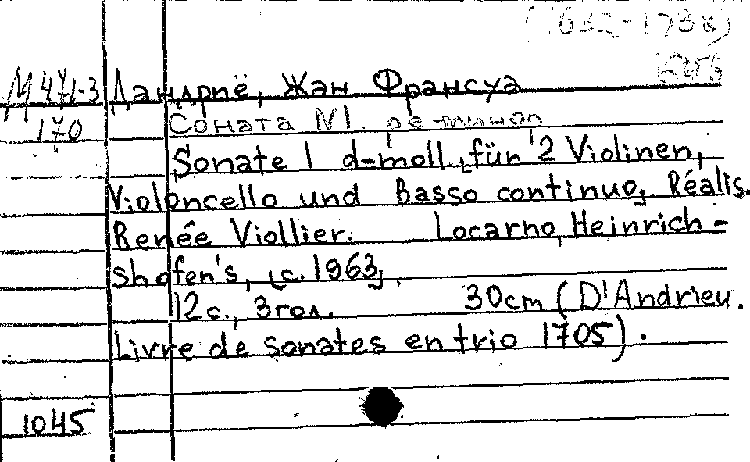 (1682-1738)
М471-3 Дандриё, Жан Франсуа
170 Соната N1 ре минор
Sonate 1 d-moll, für 2 Violinen,
Violoncello und Basso continuo, Réalis.
Renée Viollier. Locarno, Heinrich-
shofen's, c. 1963,
12 c., 3 гол. 30 cm (D'Andrieu.
Livre de sonates en trio 1705).
1045